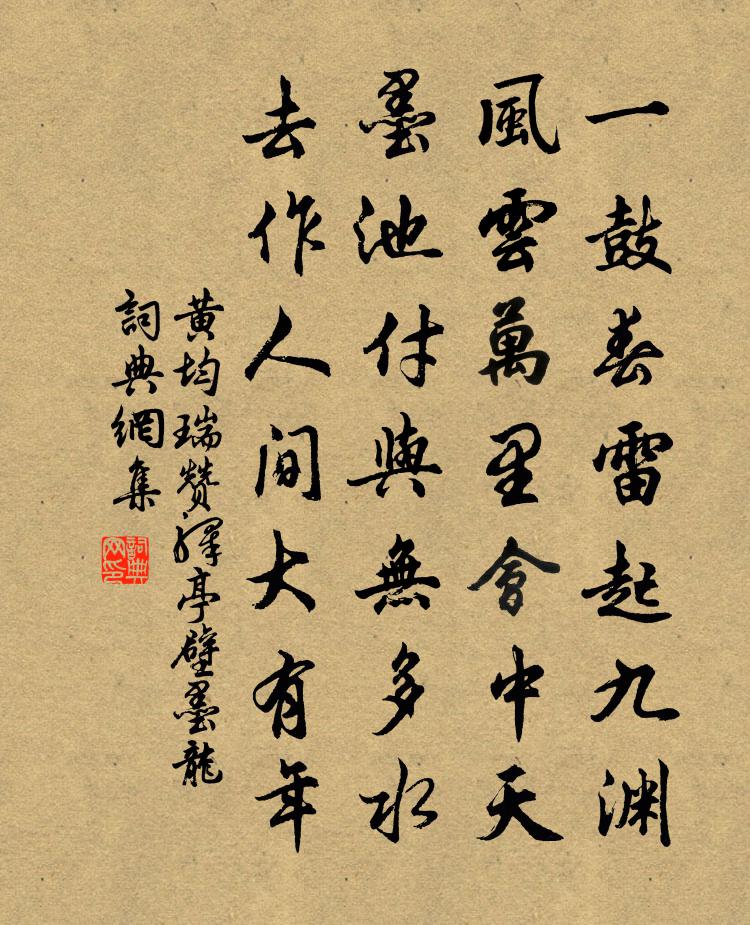 一鼓春雷起九渊
風雲萬里會中天
墨池付與無多水
去作人間大有年
黄均瑞贊驛亭壁墨龍
詞典網集
詞典网印